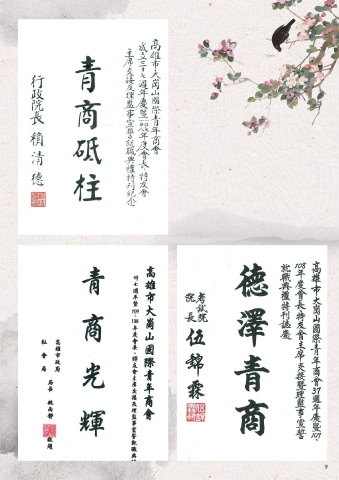 高雄市大崗山國際青年商會
成立三十七週年慶暨一〇八年度會長、特友會
主席交接及理監事宣誓就職典禮特刊紀念
青商砥柱
行政院長 賴清德
高雄市大崗山國際青年商會37週年慶暨107、
108年度會長、特友會主席交接暨理監事宣誓
就職典禮特刊誌慶
德澤青商
考試院
院長 伍錦霖
高雄市大崗山國際青年商會
青商光輝
高雄市政府
社會局
局長 姚雨靜
敬題
9